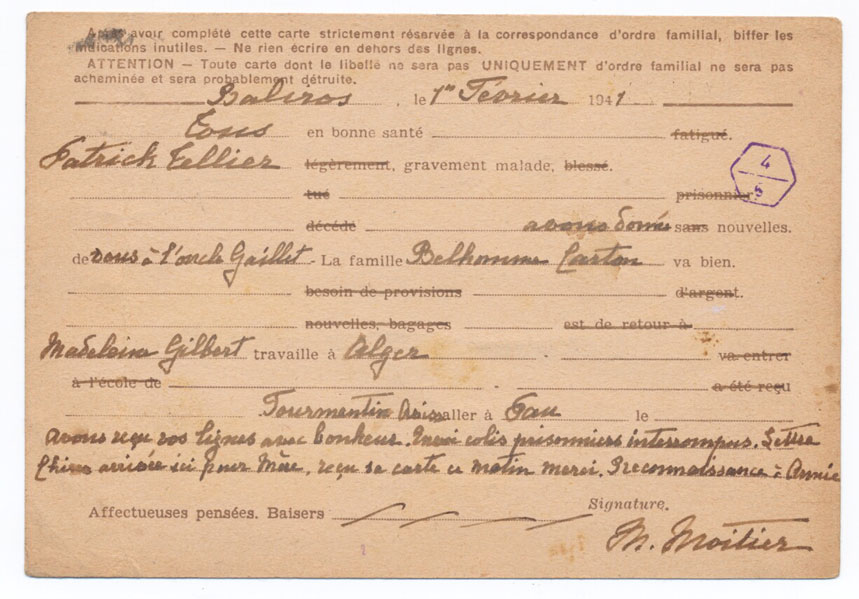 Après avoir complété cette carte strictement réservée à la correspondance d'ordre familial, biffer les
indications inutiles. — Ne rien écrire en dehors des lignes.
ATTENTION — Toute carte dont le libellé ne sera pas UNIQUEMENT d'ordre familial ne sera pas
acheminée et sera probablement détruite.
Baliros, le 1er Février 1941
Tous en bonne santé fatigué.
Patrick Tellier légèrement, gravement malade, blessé.
tué prisonnier
décédé avons donné sans nouvelles.
de vous à l'oncle Gaillet - La famille Belhomme Carton va bien.
besoin de provisions d'argent.
nouvelles, bagages est de retour à
Madeleine Gilbert travaille à Alger va entrer
à l'école de a été reçu
Tourmentin aller à Pau le
avons reçu vos lignes avec bonheur. Envoi colis prisonniers interrompus. Lettre
arrivée ici pour Mère, reçu sa carte ce matin merci. Reconnaissance à Annie
Affectueuses pensées. Baisers
Signature.
M. Moitier
4
5